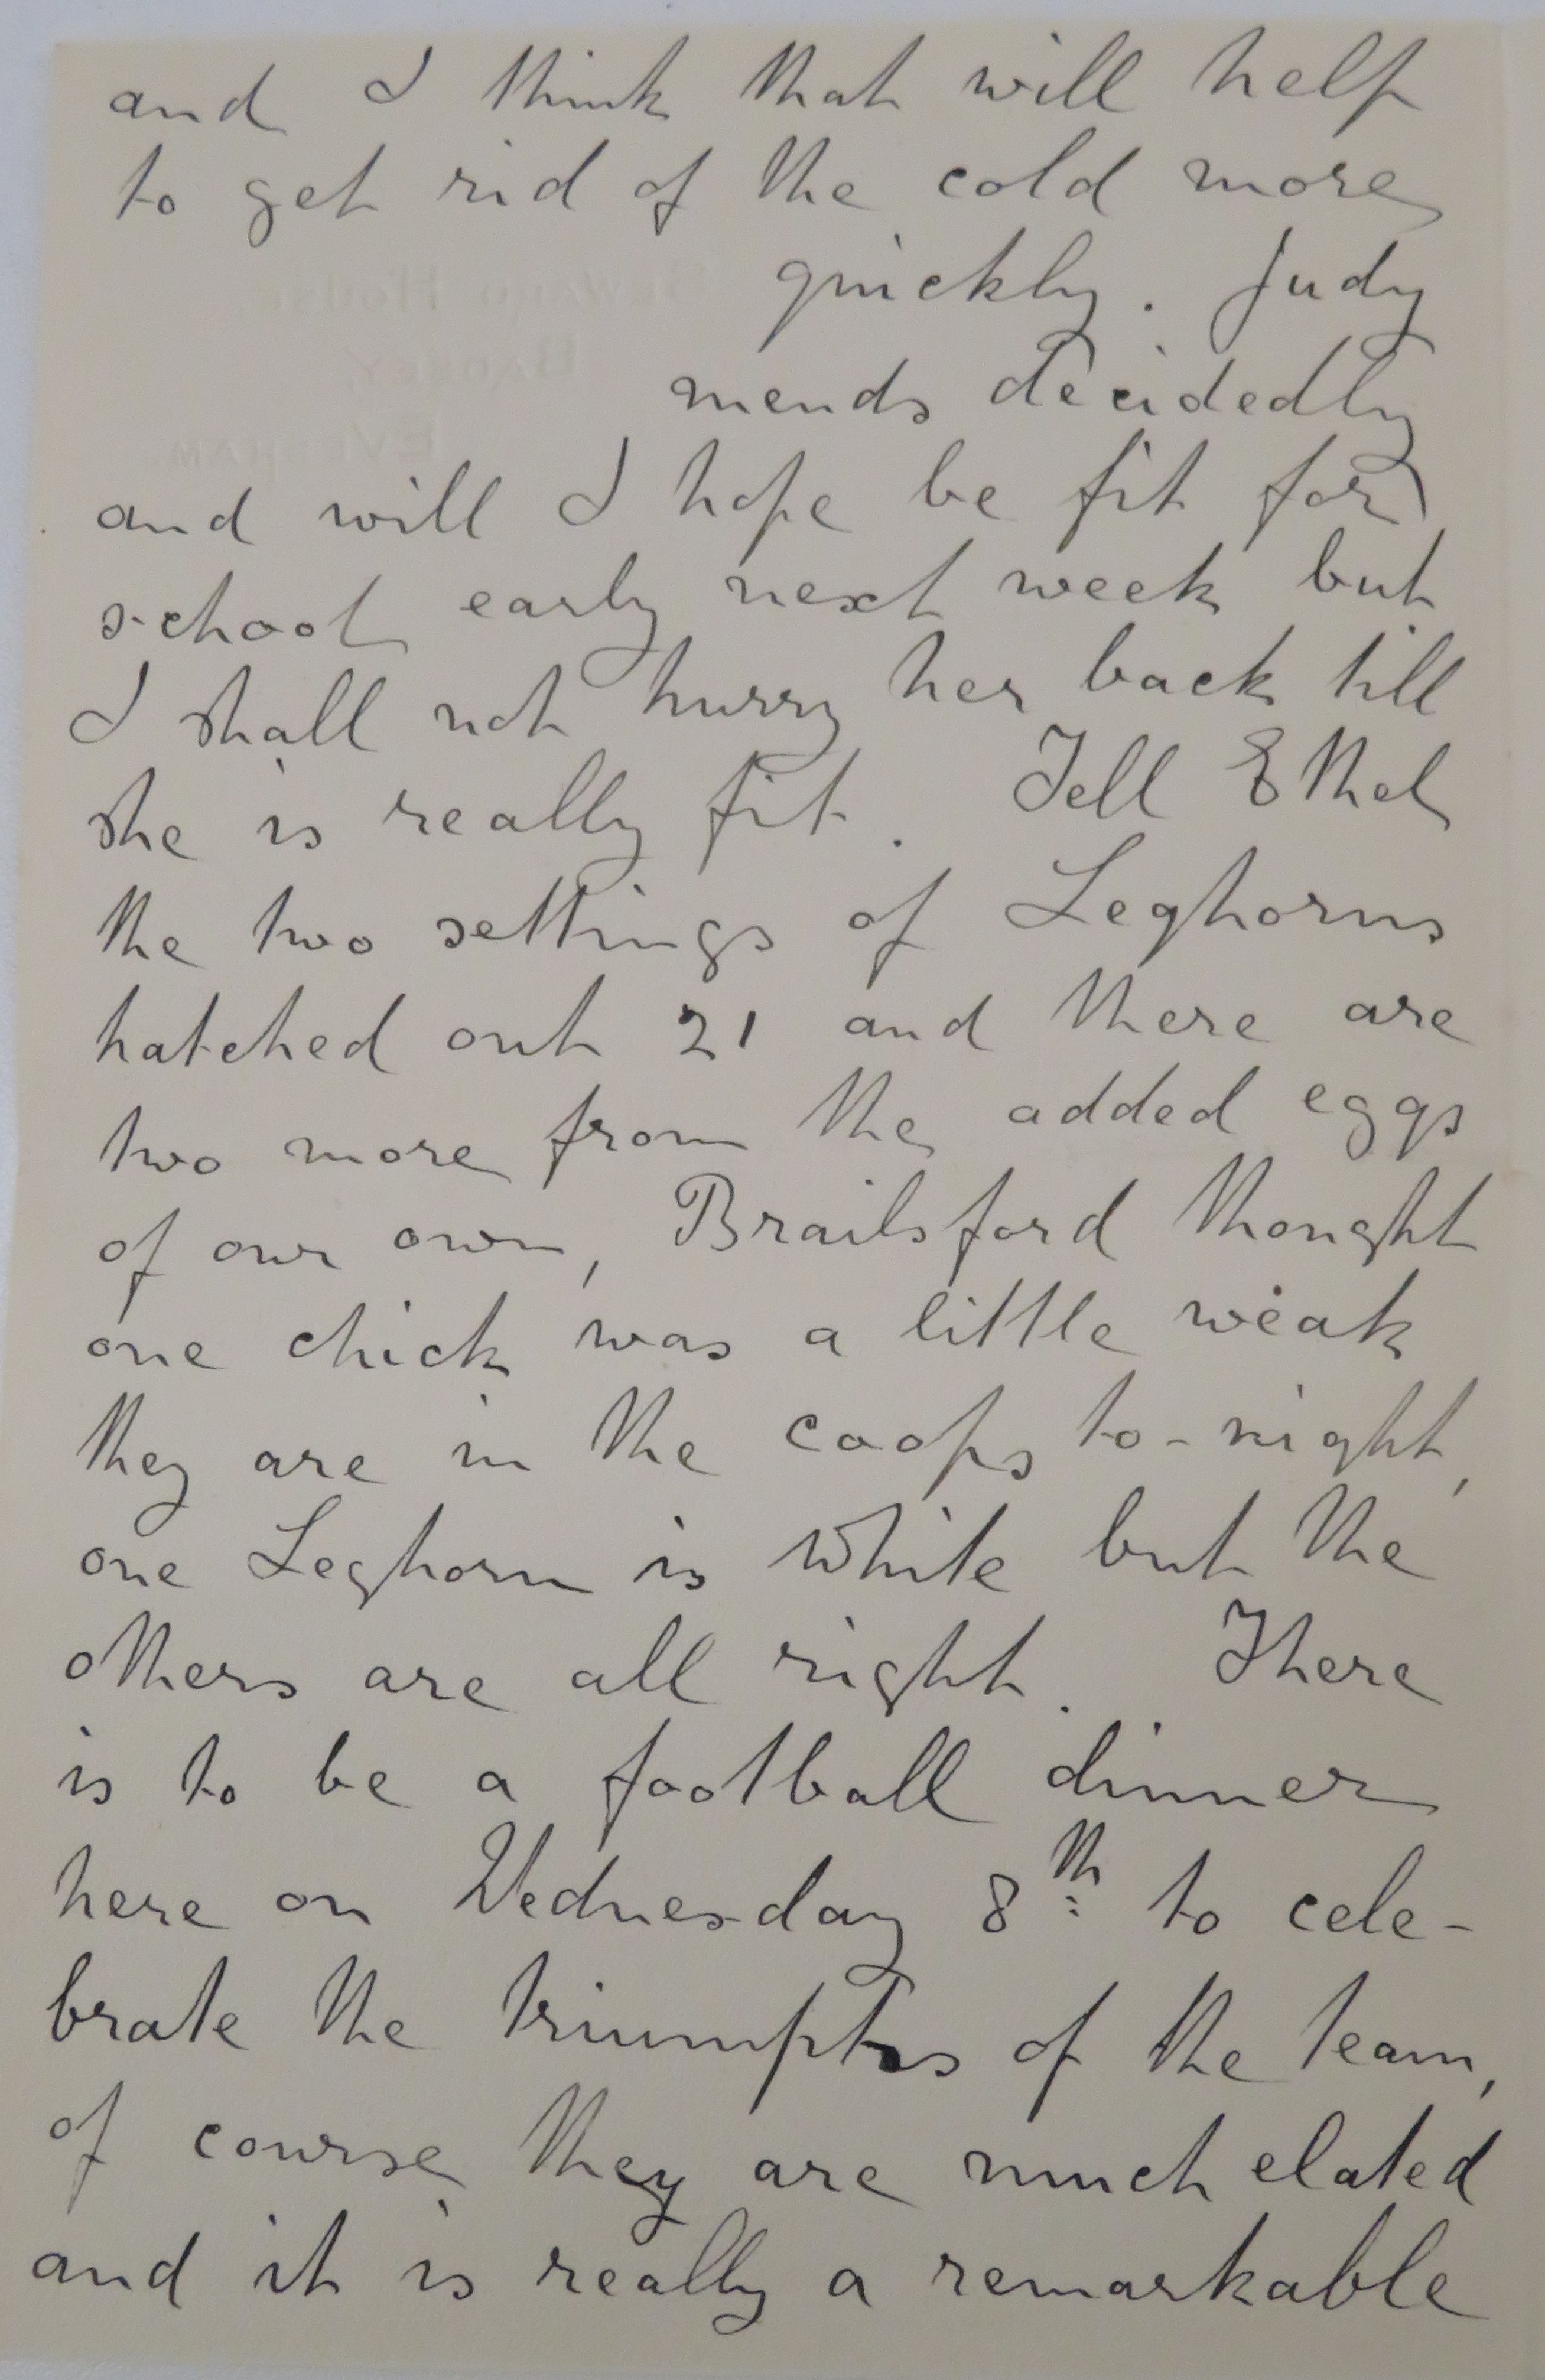 and I think that will help
to get rid of the cold more
quickly. Judy
mends decidedly
and will I hope be fit for
school early next week but
I shall not hurry her back till
she is really fit. Tell Ethel
the two settings of Leghorns
hatched out 21 and there are
two more from the added eggs
of our own, Brailsford thought
one chick was a little weak
they are in the coops to-night,
one Leghorn is white but the
others are all right. There
is to be a football dinner
here on Wednesday 8th to cele-
brate the triumphs of the team,
of course they are much elated
and it is really a remarkable